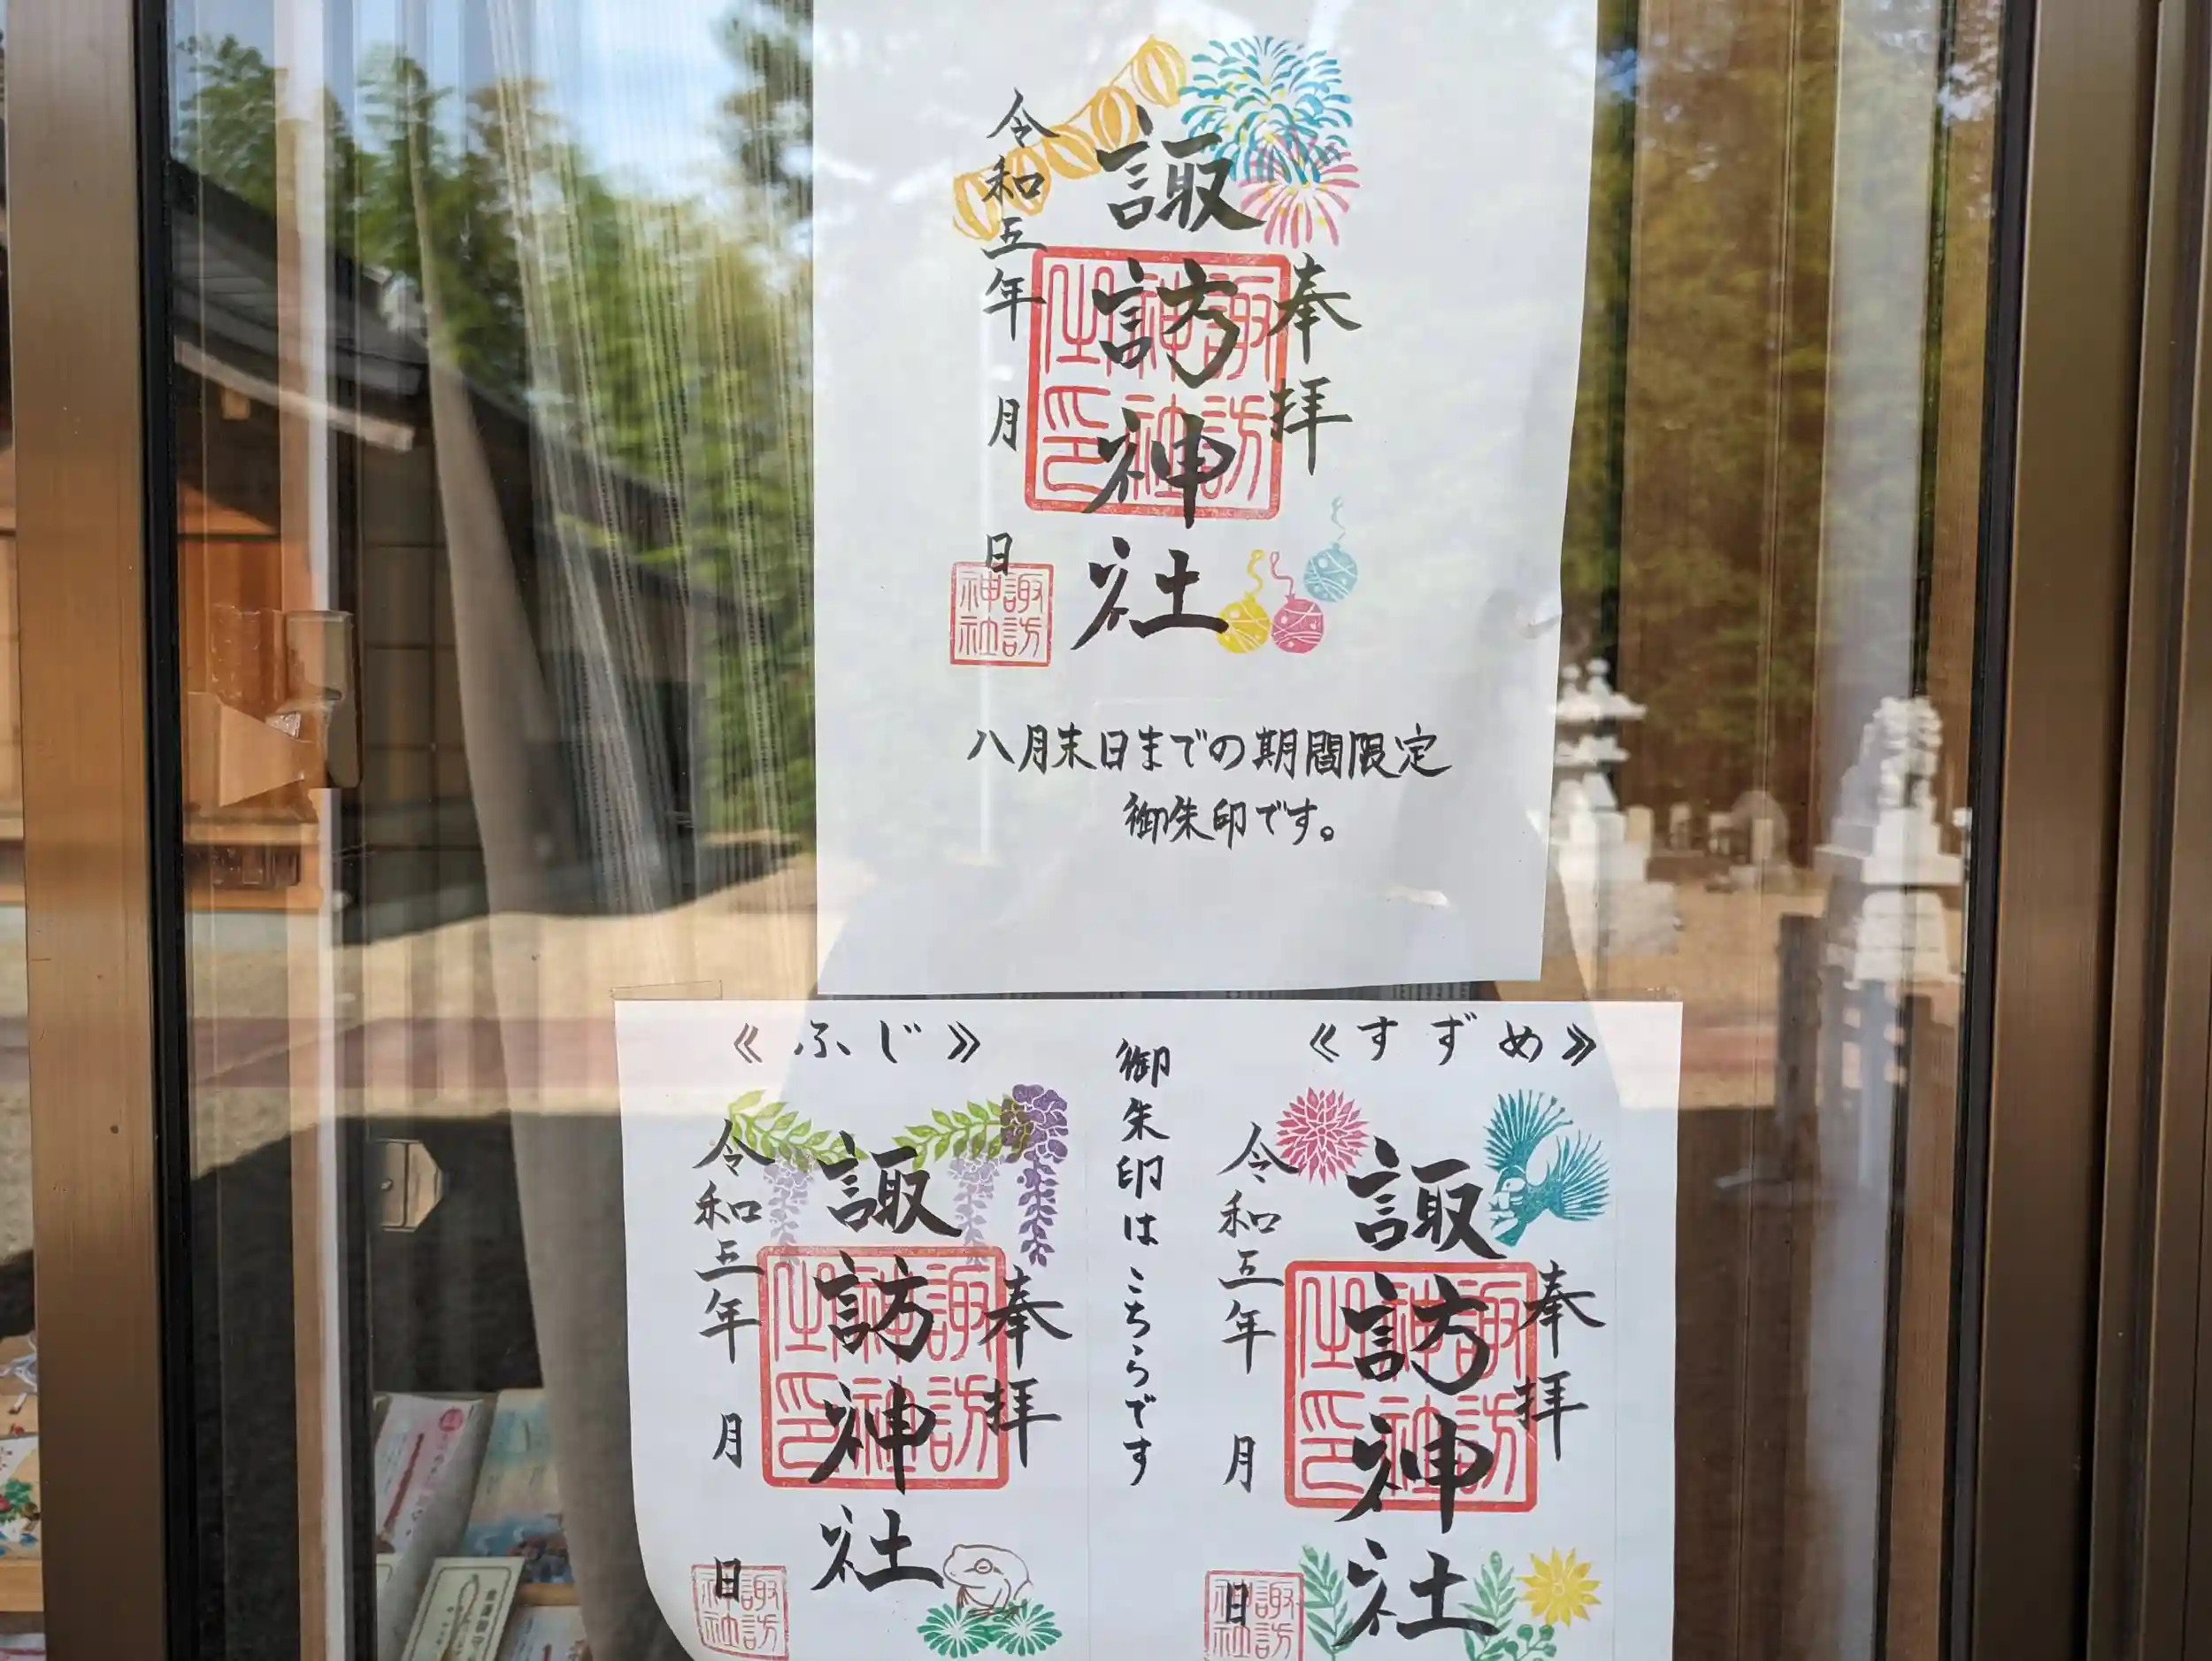 奉拝
諏訪神社
諏訪神社之印
令和五年 月 日
諏訪神社
八月末日までの期間限定
御朱印です。
《すずめ》
奉拝
諏訪神社
諏訪神社之印
令和五年 月 日
諏訪神社
御朱印はこちらです
《ふじ》
奉拝
諏訪神社
諏訪神社之印
令和五年 月 日
諏訪神社